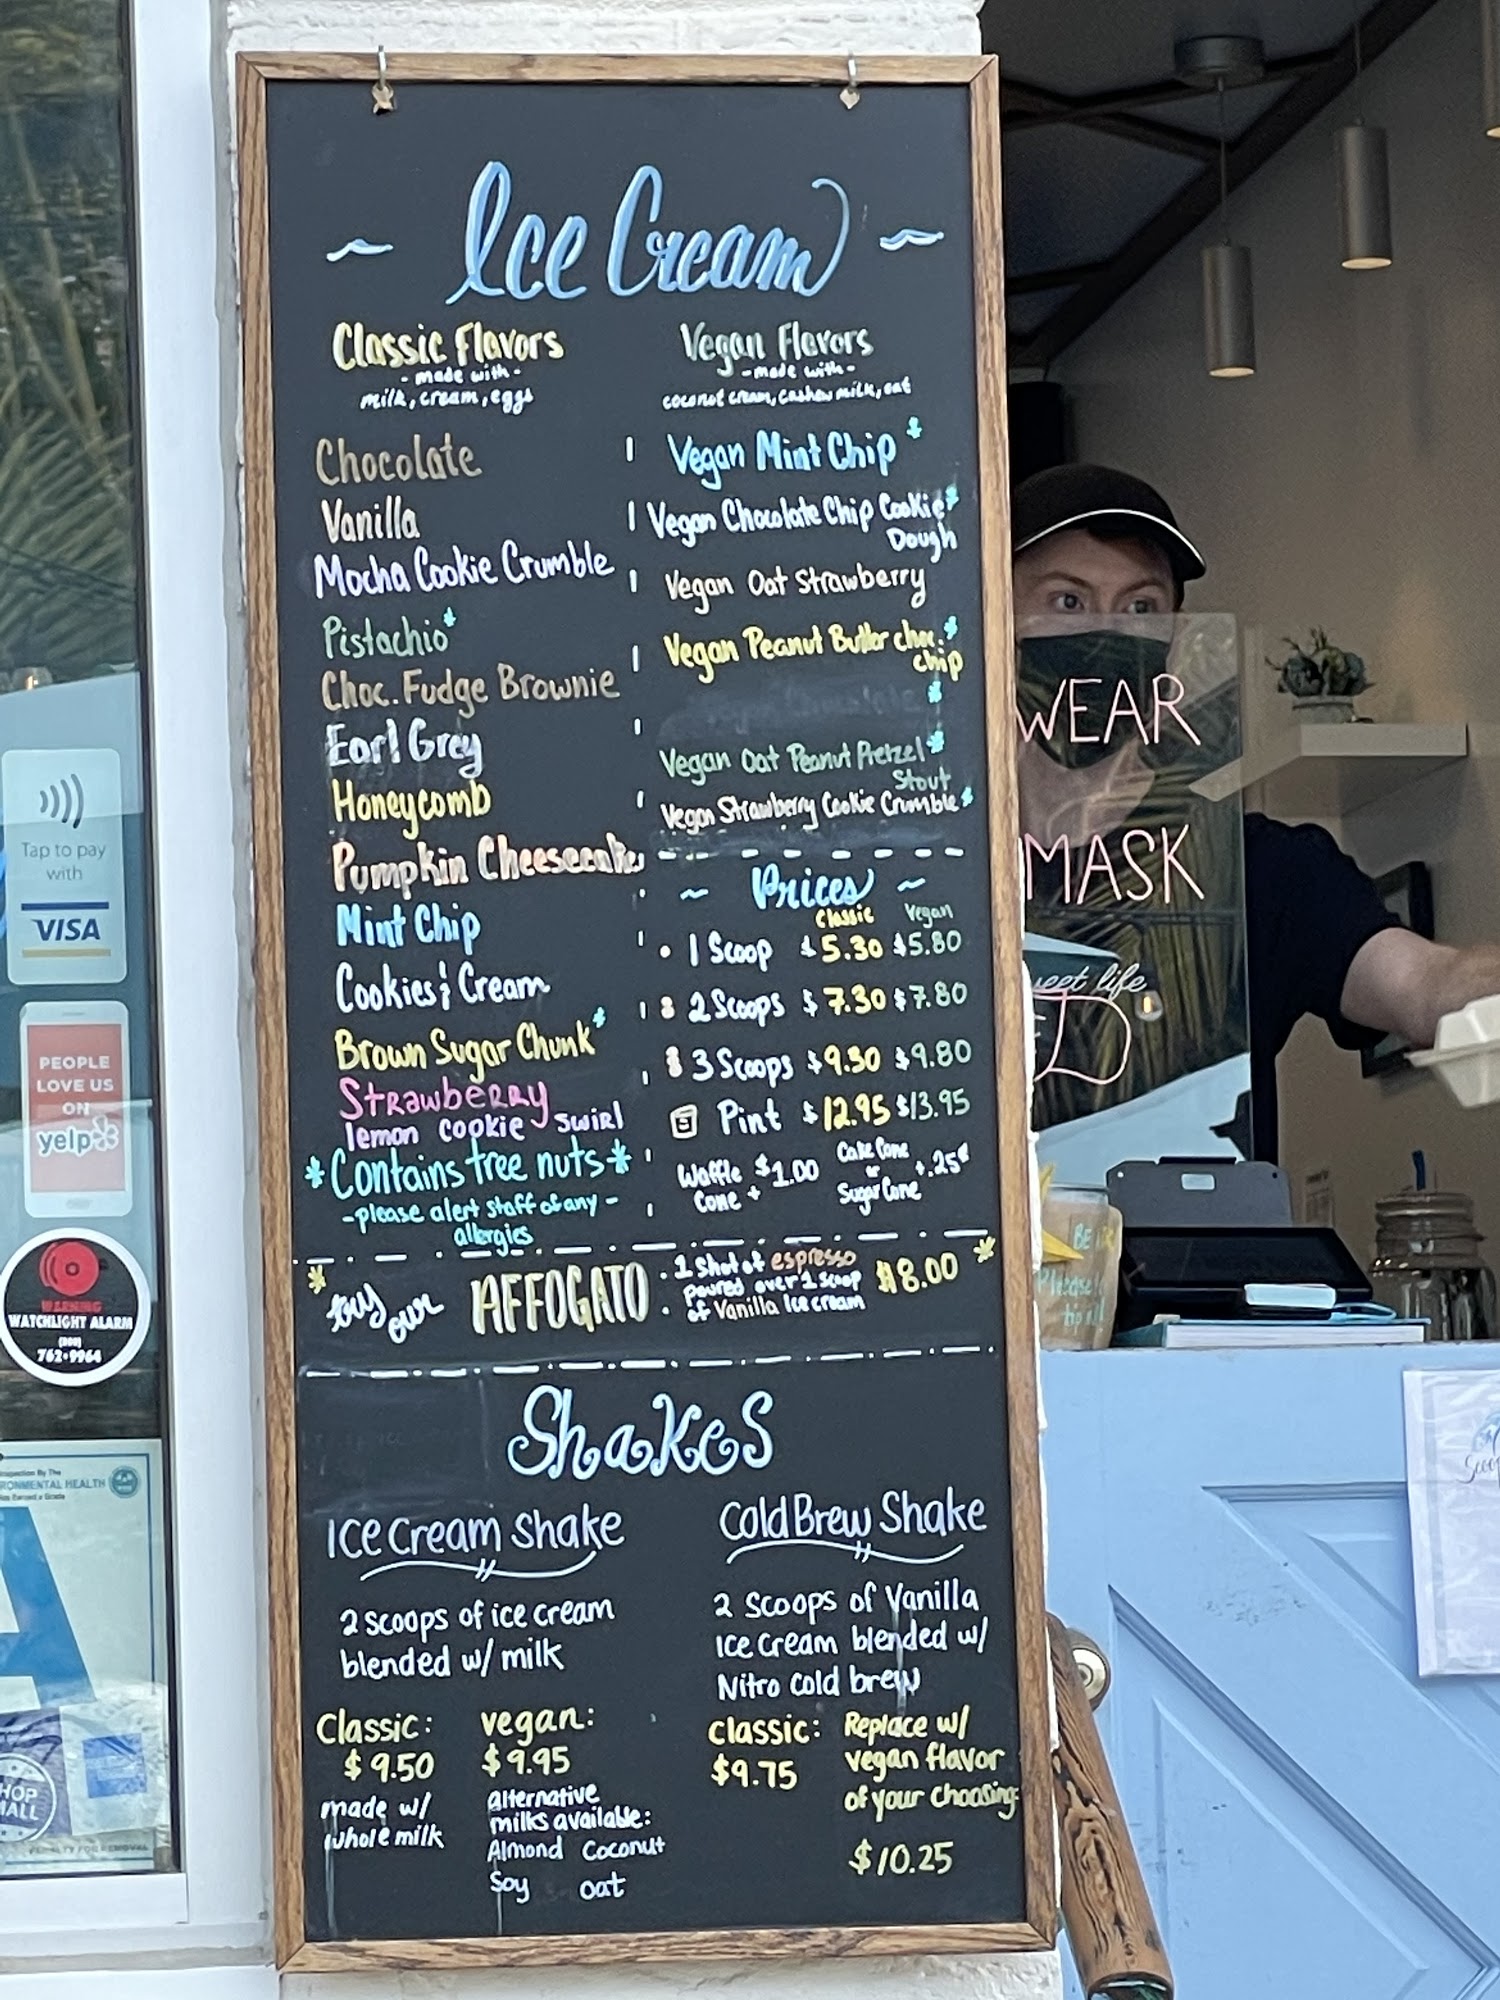 Ice Cream
Classic Flavors
- made with -
milk, cream, eggs
Chocolate
Vanilla
Mocha Cookie Crumble
Pistachio*
Choc. Fudge Brownie
Earl Grey
Honeycomb
Pumpkin Cheesecake
Mint Chip
Cookies & Cream
Brown Sugar Chunk*
Strawberry
lemon cookie swirl
*Contains tree nuts*
- please alert staff of any -
allergies
Vegan Flavors
- made with -
coconut cream, cashew milk, oat
Vegan Mint Chip*
Vegan Chocolate Chip Cookie*
Dough
Vegan Oat Strawberry
Vegan Peanut Butter choc.*
chip
Vegan Oat Peanut Pretzel*
Stout
Vegan Strawberry Cookie Crumble*
~ Prices ~
Classic Vegan
• 1 Scoop $5.30 $5.80
2 Scoops $7.30 $7.80
3 Scoops $9.30 $9.80
Pint $12.95 $13.95
Waffle
Cone + $1.00
Cake Cone
or
Sugar Cone
+.25¢
try our AFFOGATO
1 shot of espresso
poured over 1 scoop
of Vanilla Ice cream
$8.00
Shakes
Ice Cream Shake
2 scoops of ice cream
blended w/ milk
Classic:
$9.50
made w/
whole milk
vegan:
$9.95
alternative
milks available:
Almond Coconut
Soy oat
Cold Brew Shake
2 scoops of Vanilla
Ice Cream blended w/
Nitro cold brew
classic:
$9.75
Replace w/
vegan flavor
of your choosing:
$10.25
Tap to pay
with
VISA
PEOPLE
LOVE US
ON
yelp
WARNING
WATCHLIGHT ALARM
762-9964
WEAR
MASK
life